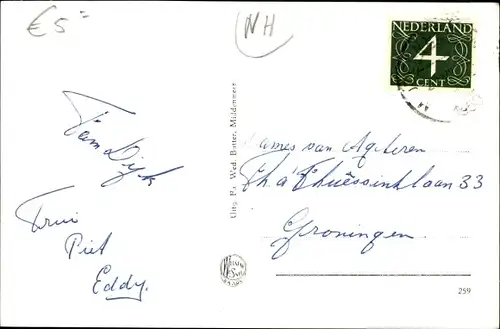 €5=
NH
NEDERLAND
4
CENT
Fam Dijk
Truus
Piet
Eddy.
Uitg. Fa. Wed. Butter, Middenmeer
Dames van Agteren
Th. a' Thuessinklaan 33
Groningen.
259